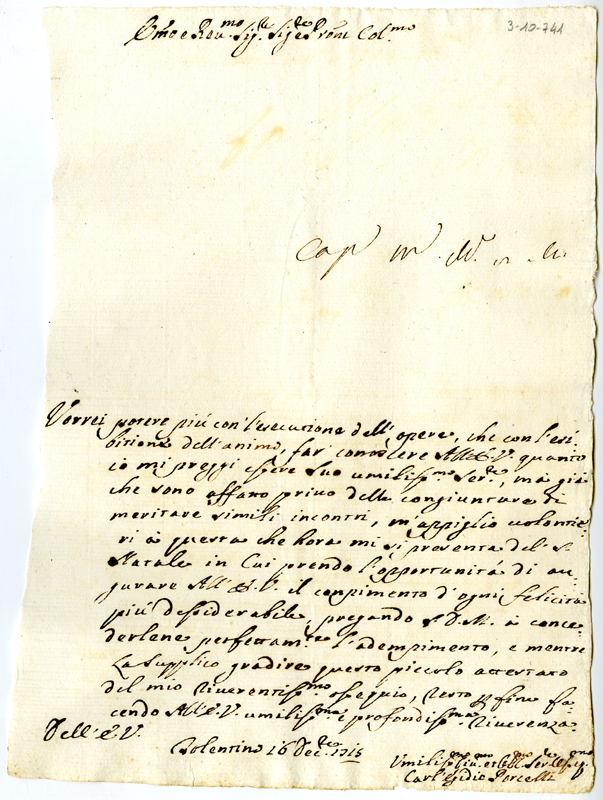 3-10-741
Em̃o e Reu.mo Sig.re Sig.re e Pr̃on Col.mo
Vorrei potere più con l'esecuzione dell'opere, che con l'esi=
bitione dell'animo, far conoscere All'E.V. quanto
io mi preggi essere Suo umiliss.mo Ser.re, ma già
che sono affatto priuo delle congiunture di
meritare simili incontri, m'appiglio uolontie=
ri à questa che hora mi si presenta del S.
Natale in Cui prendo l'opportunità di au=
gurare All'E.V. il compimento d'ogni felicità
più desiderabile, pregando S.D.M. à conce=
derlene perfettam.te l'adempimento, e mentre
La Supplico gradire questo piccolo attestato
del mio riuerentiss.mo ossequio, resto p fine fa=
cendo All'E.V. umiliss.ma e profondiss.ma riuerenza
Dell'E.V.
Tolentino 16 Dec.re 1715
Umiliss.mo
Carl'Egidio Porcelli